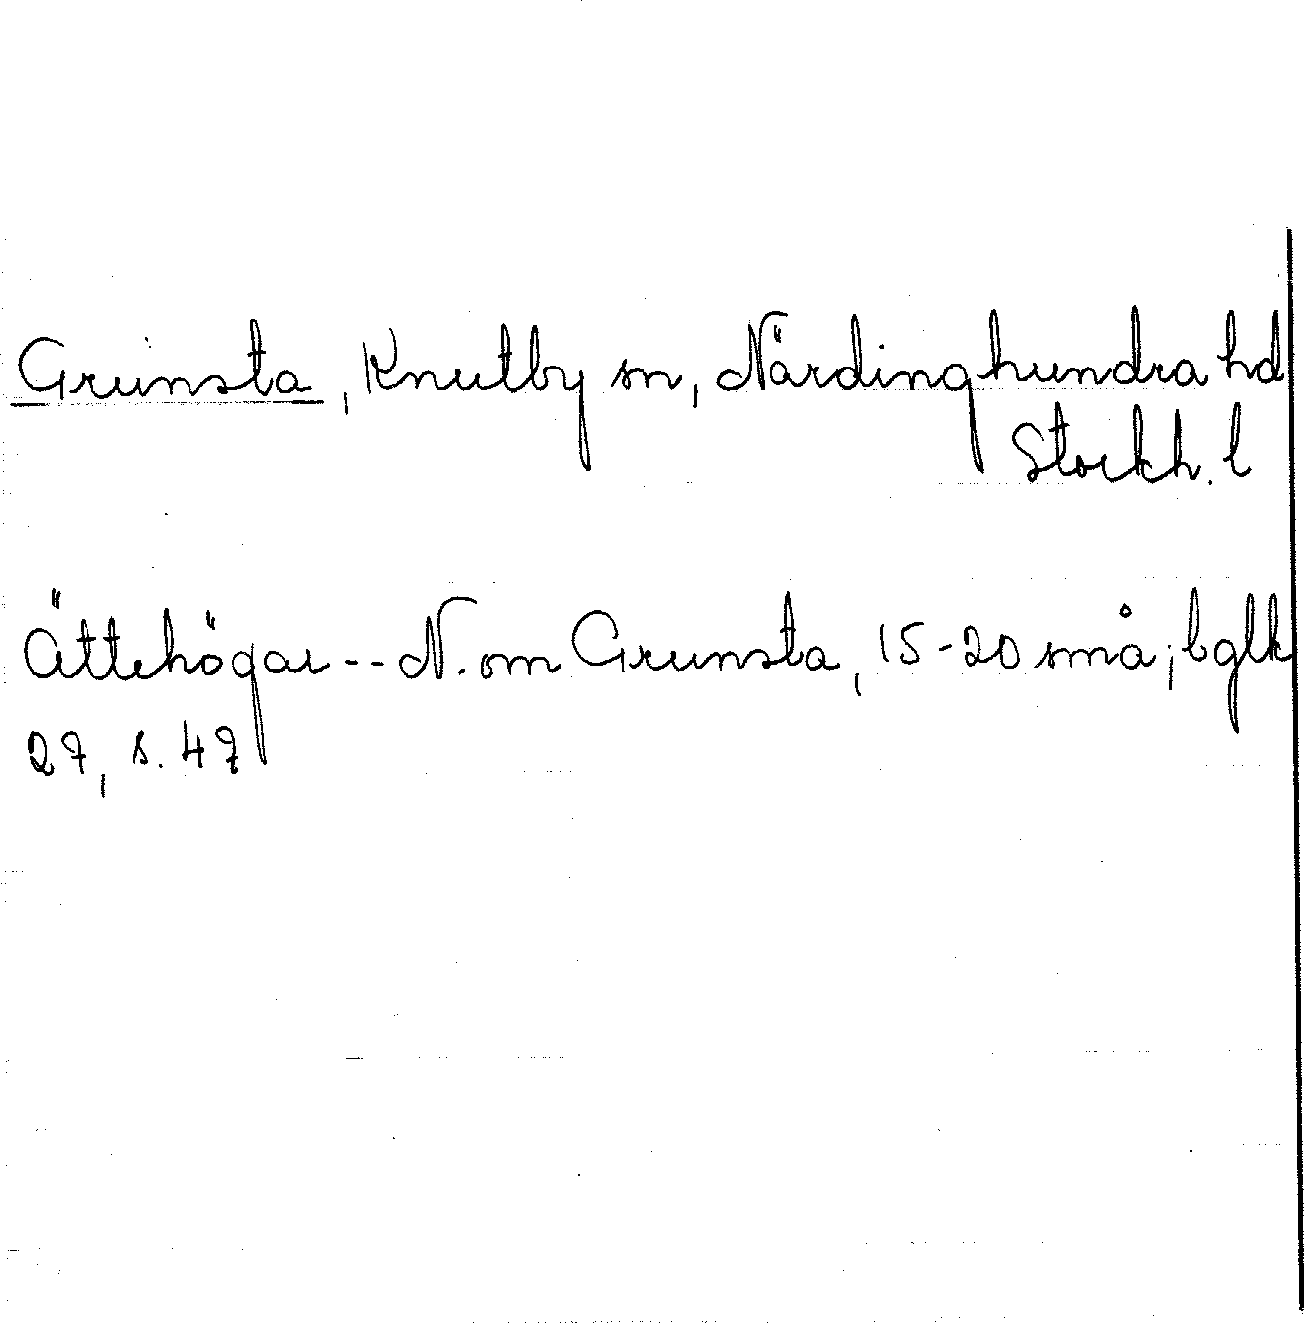 Grunsta, Knutby sn, Närdinghundra hd
Stockh. l
Ättehögar -- N. om Grunsta, 15-20 små; bglk
27, s. 47